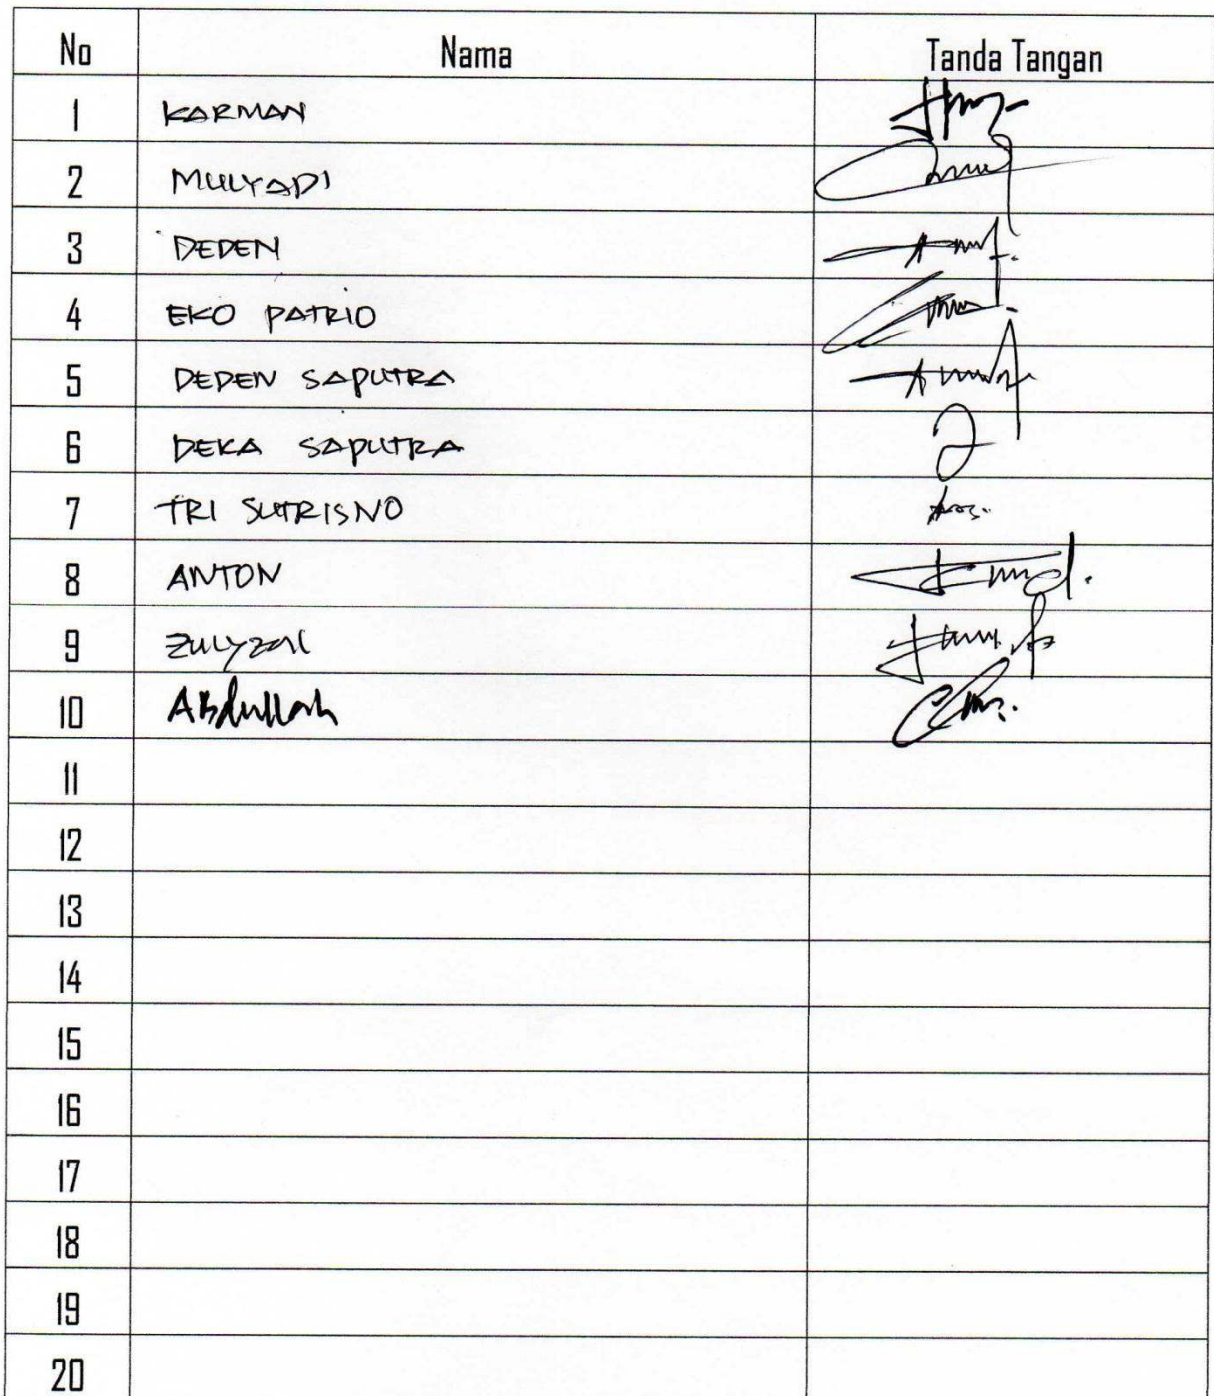 No Nama Tanda Tangan
1 KARMAN
2 MULYADI
3 DEDEN
4 EKO PATRIO
5 DEDEN SAPUTRA
6 DEKA SAPUTRA
7 TRI SUTRISNO
8 ANTON
9 ZULYZAL
10 Abdullah
11
12
13
14
15
16
17
18
19
20